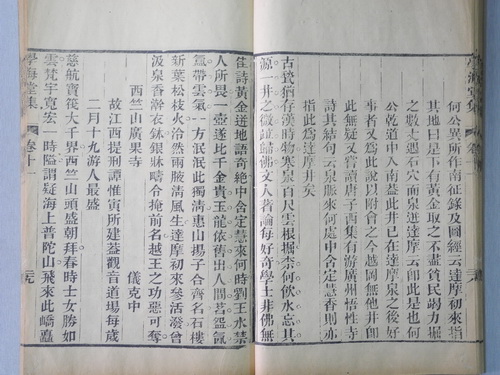 學海堂集
何公異所作南征錄及圖經云達摩初來指
其地曰是下有黃金取之不盡貧民竭力掘
之數丈遇石穴而泉迸達摩云卽此是也何
公乾道中入南蓋此井已在達摩泉之後好
事者又為此說以附會之今越岡無他井則
此無疑又嘗讀唐子西集有游廣州悟性寺
詩其結句云泉脈來何處中含定慧香則亦
指此為達摩井矣
古甃猶存漢時物寒泉百尺雲根掘柰何飲水忘其
源一井之微從歸佛文人著論每好奇學士非佛無
佳詩黃金迸地語奇絶中含定慧來何時劉王水禁
人所畏一壺遂比千金貴玉龍依舊出人間習習氤
氳帶雲氣一方泯泯此獨清惠山揚子合齊名石樓
新葉松枝火泠然兩腋清風生達摩初來參活潑曾
汲泉香澣衣鉢銀牀疇令掩前名越王之功惡可奪
西竺山廣果寺 儀克中
故江西提刑譚惟寅所建葢觀音道場每歲
二月十九游人最盛
慈航寶筏大千界西竺山頭盛朝拜春時士女勝如
雲梵宇寬宏一時隘謂疑海上普陀山飛來此嶠
學海堂集 卷十一